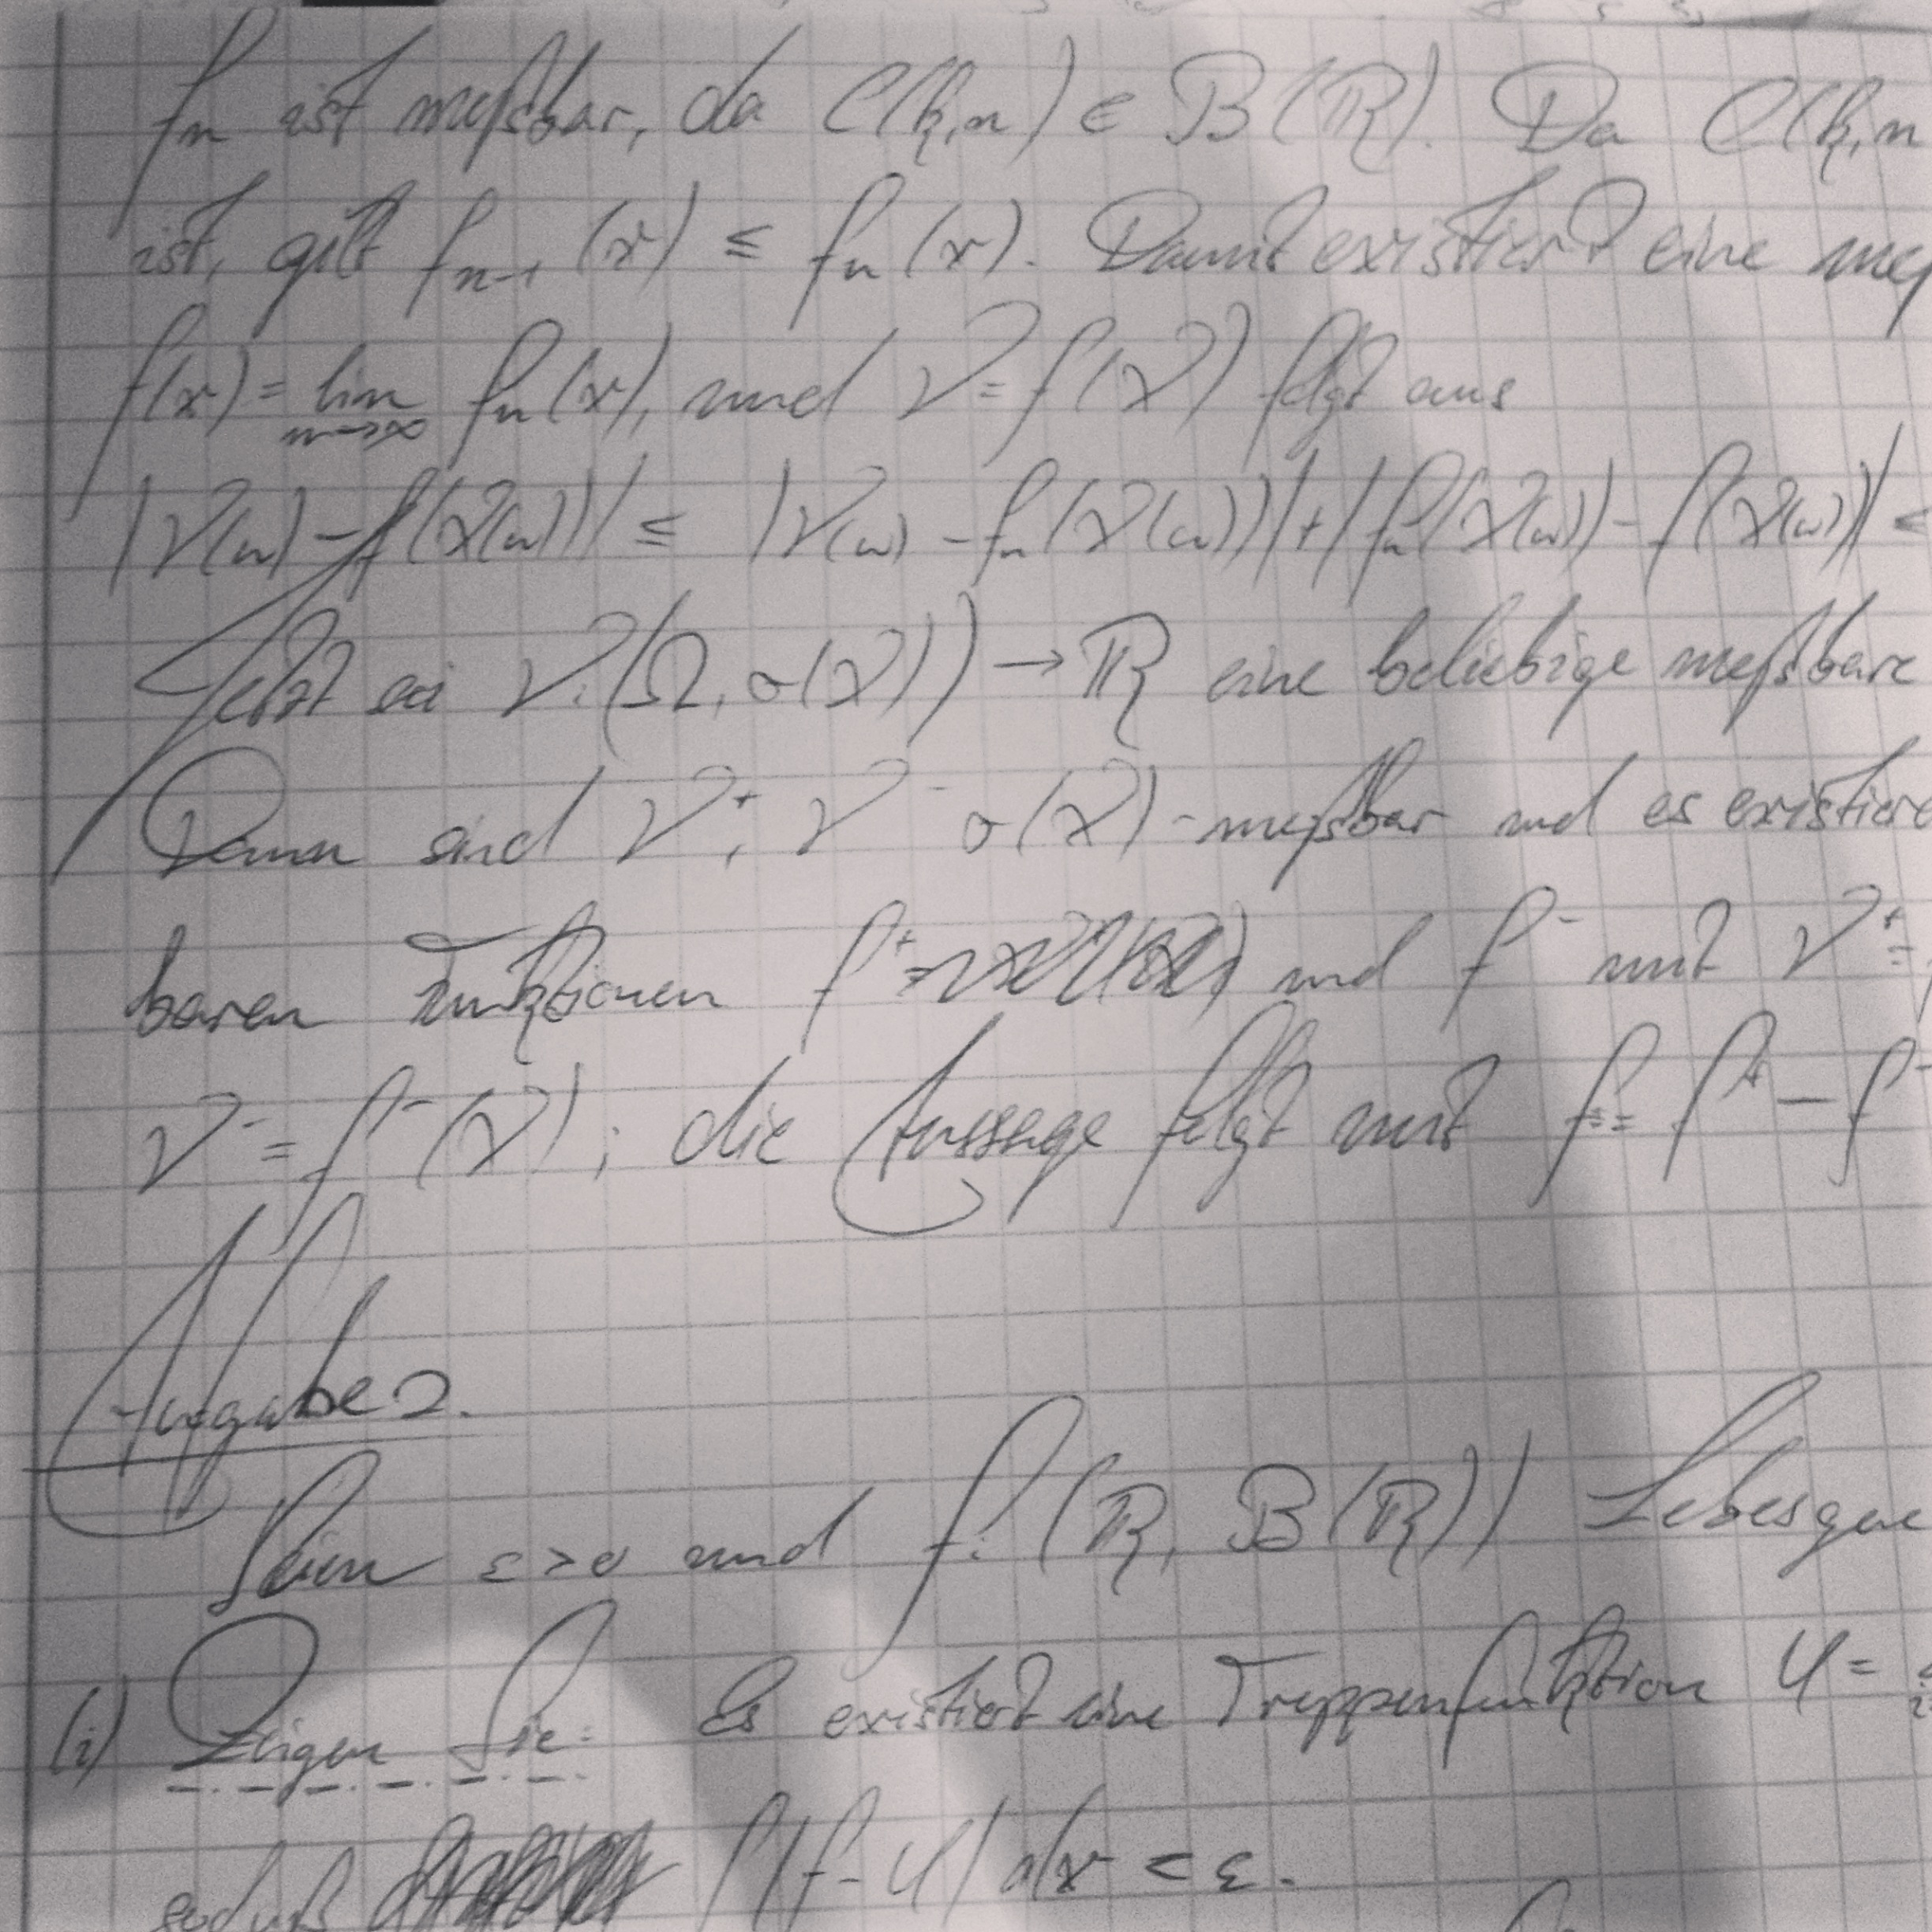 fₙ ist meßbar, da C(k,n) ∈ B(ℝ). Da C(k,n
ist, gilt fₙ₋₁(x) ≤ fₙ(x). Damit existiert eine meß
f(x) = lim fₙ(x), und Y = f(X) folgt aus
n→∞
|Y(ω) - f(X(ω))| ≤ |Y(ω) - fₙ(X(ω))| + |fₙ(X(ω)) - f(X(ω))| <
Jetzt sei Y: (Ω, σ(X)) → ℝ eine beliebige meßbare
Dann sind Y⁺, Y⁻ σ(X)-meßbar und es existiere
baren Funktionen f⁺ und f⁻ mit Y⁺ =
Y⁻ = f⁻(X); die Aussage folgt mit f := f⁺ - f⁻
Aufgabe 2.
Seien ε > 0 und f: (ℝ, B(ℝ)) Lebesgue
(i) Zeigen Sie: Es existiert eine Treppenfunktion φ =
sodaß ∫|f - φ| dx < ε.